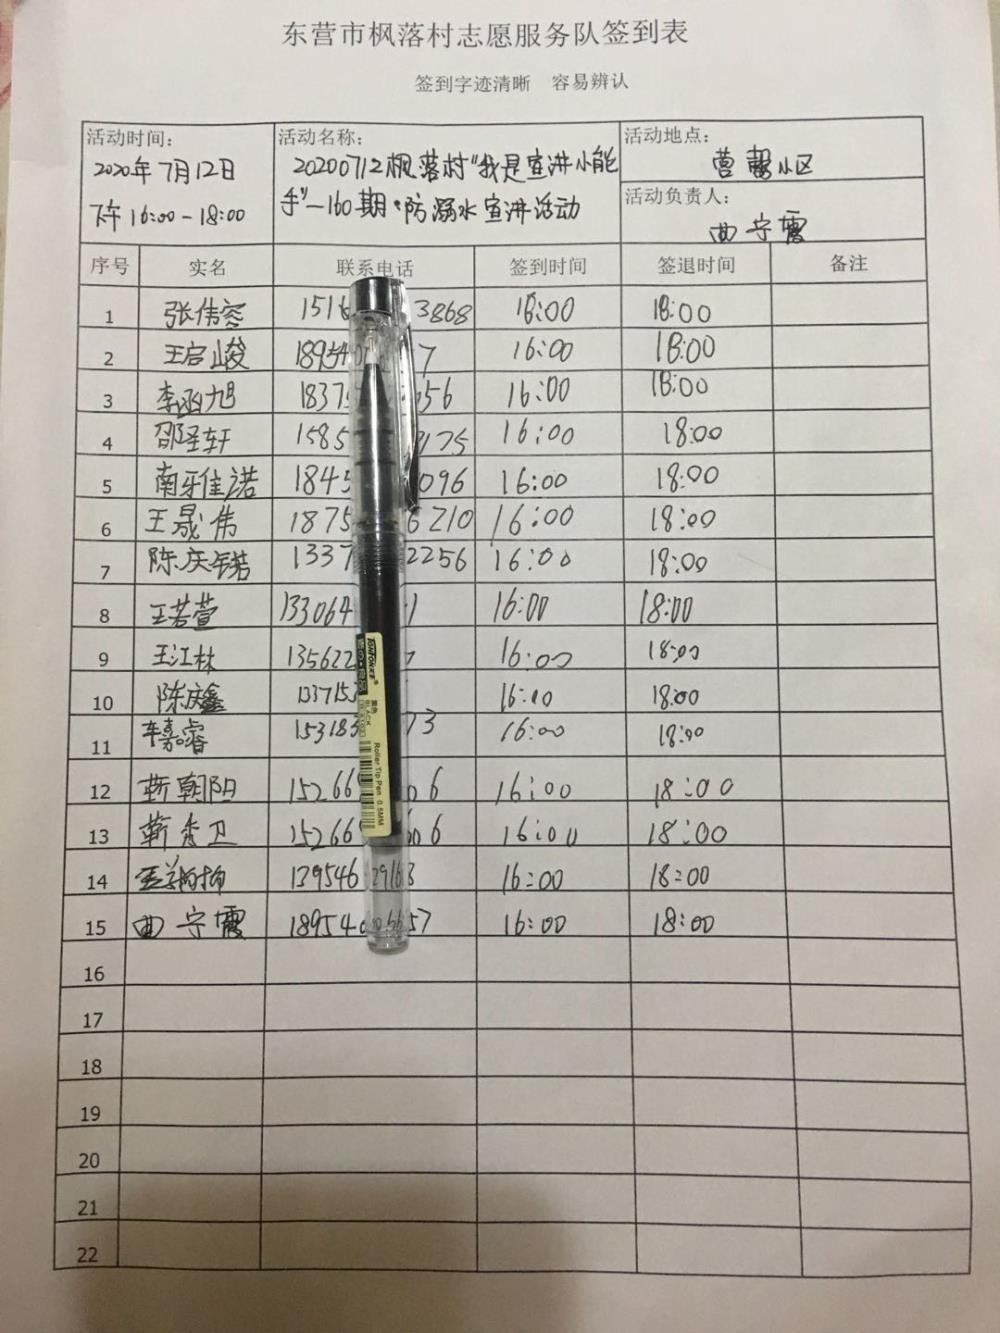 东营市枫落村志愿服务队签到表
签到字迹清晰 容易辨认
活动时间:
2020年7月12日
下午16:00-18:00
活动名称:
20200712枫落村"我是宣讲小能
手"—160期·防溺水宣讲活动
活动地点:
小区
活动负责人:
曲宁霞
序号 实名 联系电话 签到时间 签退时间 备注
1 张伟容 1516 3868 18:00 18:00
2 王启峻 18954 7 16:00 18:00
3 李函旭 1837 656 16:00 18:00
4 邵圣轩 1585 175 16:00 18:00
5 南牙佳诺 1845 096 16:00 18:00
6 王晟伟 1875 6210 16:00 18:00
7 陈庆锘 1337 2256 16:00 18:00
8 王若萱 133064 1 16:00 18:00
9 王江林 135622 16:00 18:00
10 陈庆鑫 137153 16:00 18:00
11 车嘉睿 15318 73 16:00 18:00
12 靳朝阳 15266 6 16:00 18:00
13 靳秀卫 15266 06 16:00 18:00
14 139546 29168 16:00 18:00
15 曲宁霞 18954 6657 16:00 18:00
16
17
18
19
20
21
22
黑色
BLACK
Roller Tip Pen 0.5MM